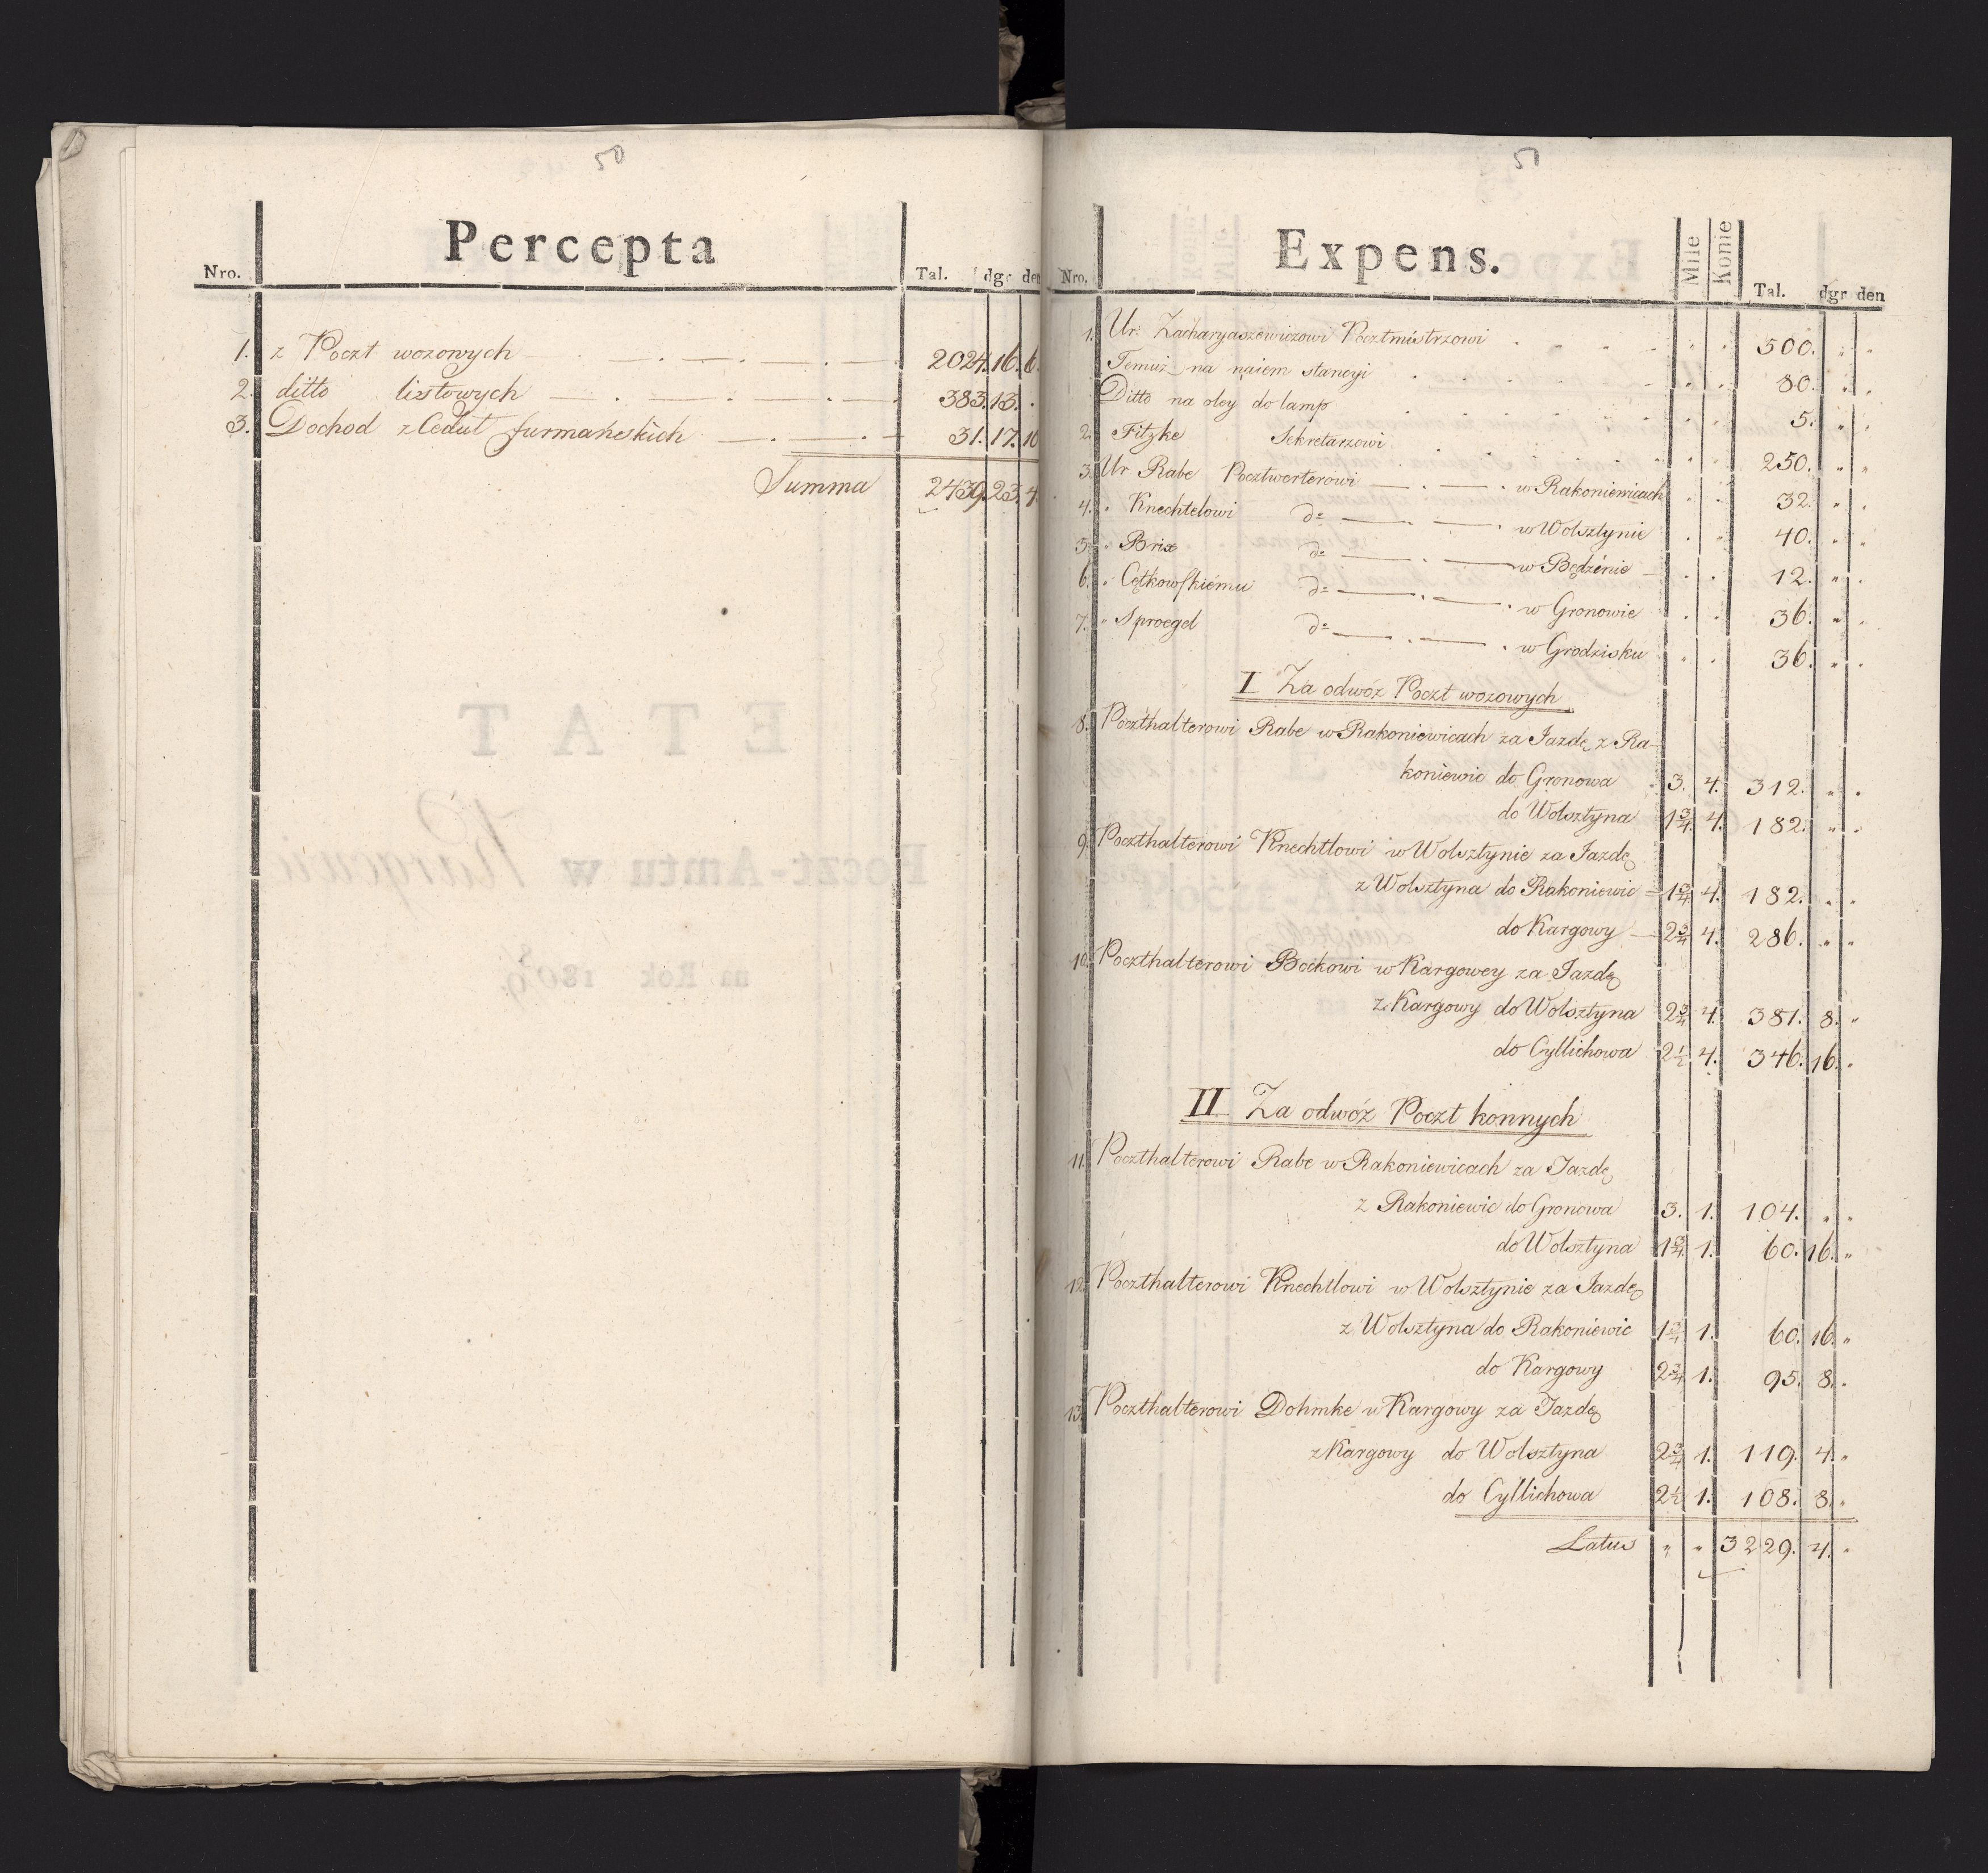 50
Percepta
Nro. Tal. dgr den
1. z Poczt wozowych 2024. 16. 6.
2. ditto listowych 383. 13. .
3. Dochod z Cedut furmańskich 31. 17. 10
Summa 2439. 23. 4.
51
Expens.
Nro. Mile Konie Tal. dgr den
1. Ur: Zacharyaszewiczowi Pocztmistrzowi . . 500. " "
Temuż na naiem stancyi . . 80. " "
Ditto na oley do lamp . . 5. " "
2. Fitzke Sekretarzowi . . 250. " "
3. Ur Rabe Pocztwerterowi w Rakoniewicach . . 32. " "
4. " Knechtelowi do w Wolsztynie . . 40. " "
5. " Brix do w Będzinie . . 12. " "
6. " Cętkowskiemu do w Gronowie . . 36. " "
7. " Sproegel do w Grodzisku . . 36. " "
I Za odwóz Poczt wozowych
8. Poczthalterowi Rabe w Rakoniewicach za Jazdę z Ra-
koniewic do Gronowa 3. 4. 312. " "
do Wolsztyna 1 3/4 4. 182. " "
9. Poczthalterowi Knechtlowi w Wolsztynie za Jazdę
z Wolsztyna do Rakoniewic 1 3/4 4. 182. " "
do Kargowy 2 3/4 4. 286. " "
10. Poczthalterowi Bockowi w Kargowey za Jazdę
z Kargowy do Wolsztyna 2 3/4 4. 381. 8. "
do Cyllichowa 2 1/2 4. 346. 16. "
II Za odwóz Poczt konnych
11. Poczthalterowi Rabe w Rakoniewicach za Jazdę
z Rakoniewic do Gronowa 3. 1. 104. " "
do Wolsztyna 1 3/4 1. 60. 16. "
12. Poczthalterowi Knechtlowi w Wolsztynie za Jazdę
z Wolsztyna do Rakoniewic 1 3/4 1. 60. 16. "
do Kargowy 2 3/4 1. 95. 8. "
13. Poczthalterowi Dohmke w Kargowy za Jazdę
z Kargowy do Wolsztyna 2 3/4 1. 119. 4. "
do Cyllichowa 2 1/2 1. 108. 8. "
Latus " " 3229. 4. "